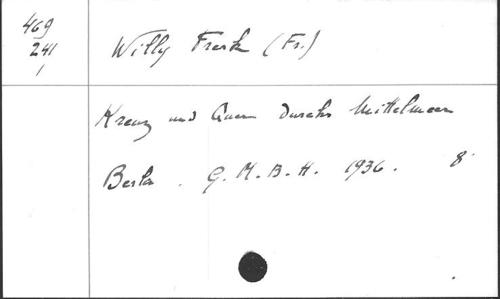 469
241
1
Willy Frerk (Fr.)
Kreuz und Quer durchs Mittelmeer
Berlin. G.M.B.H. 1936. 8°